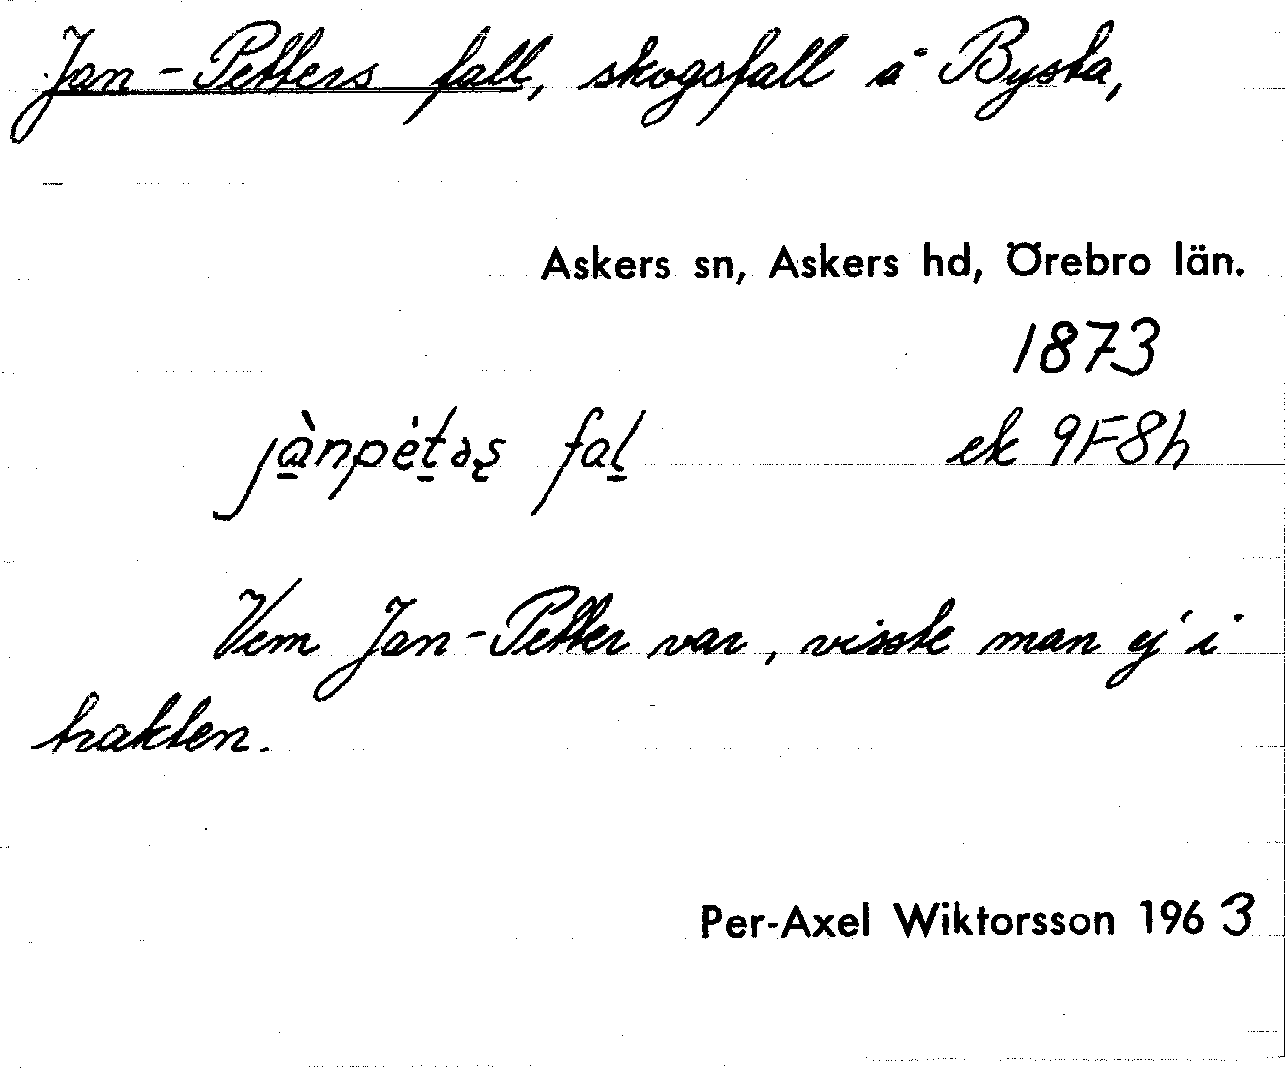 Jan-Petters fall, skogsfall å Bysta,
Askers sn, Askers hd, Örebro län.
1873
jà̱npéṯəʂ faḻ ek 9F8h
Vem Jan-Petter var, visste man ej i
trakten.
Per-Axel Wiktorsson 1963